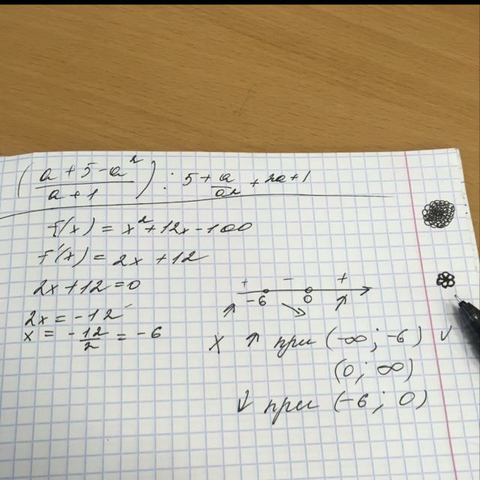 (a + 5 - a² / a + 1) : 5 + a / a² + 2a + 1
f(x) = x² + 12x - 100
f'(x) = 2x + 12
2x + 12 = 0
2x = -12
x = -12/2 = -6
+ - +
-6 0
↑ ↘ ↑
x ↑ при (-∞; -6) ∨
(0; ∞)
↓ при (-6; 0)